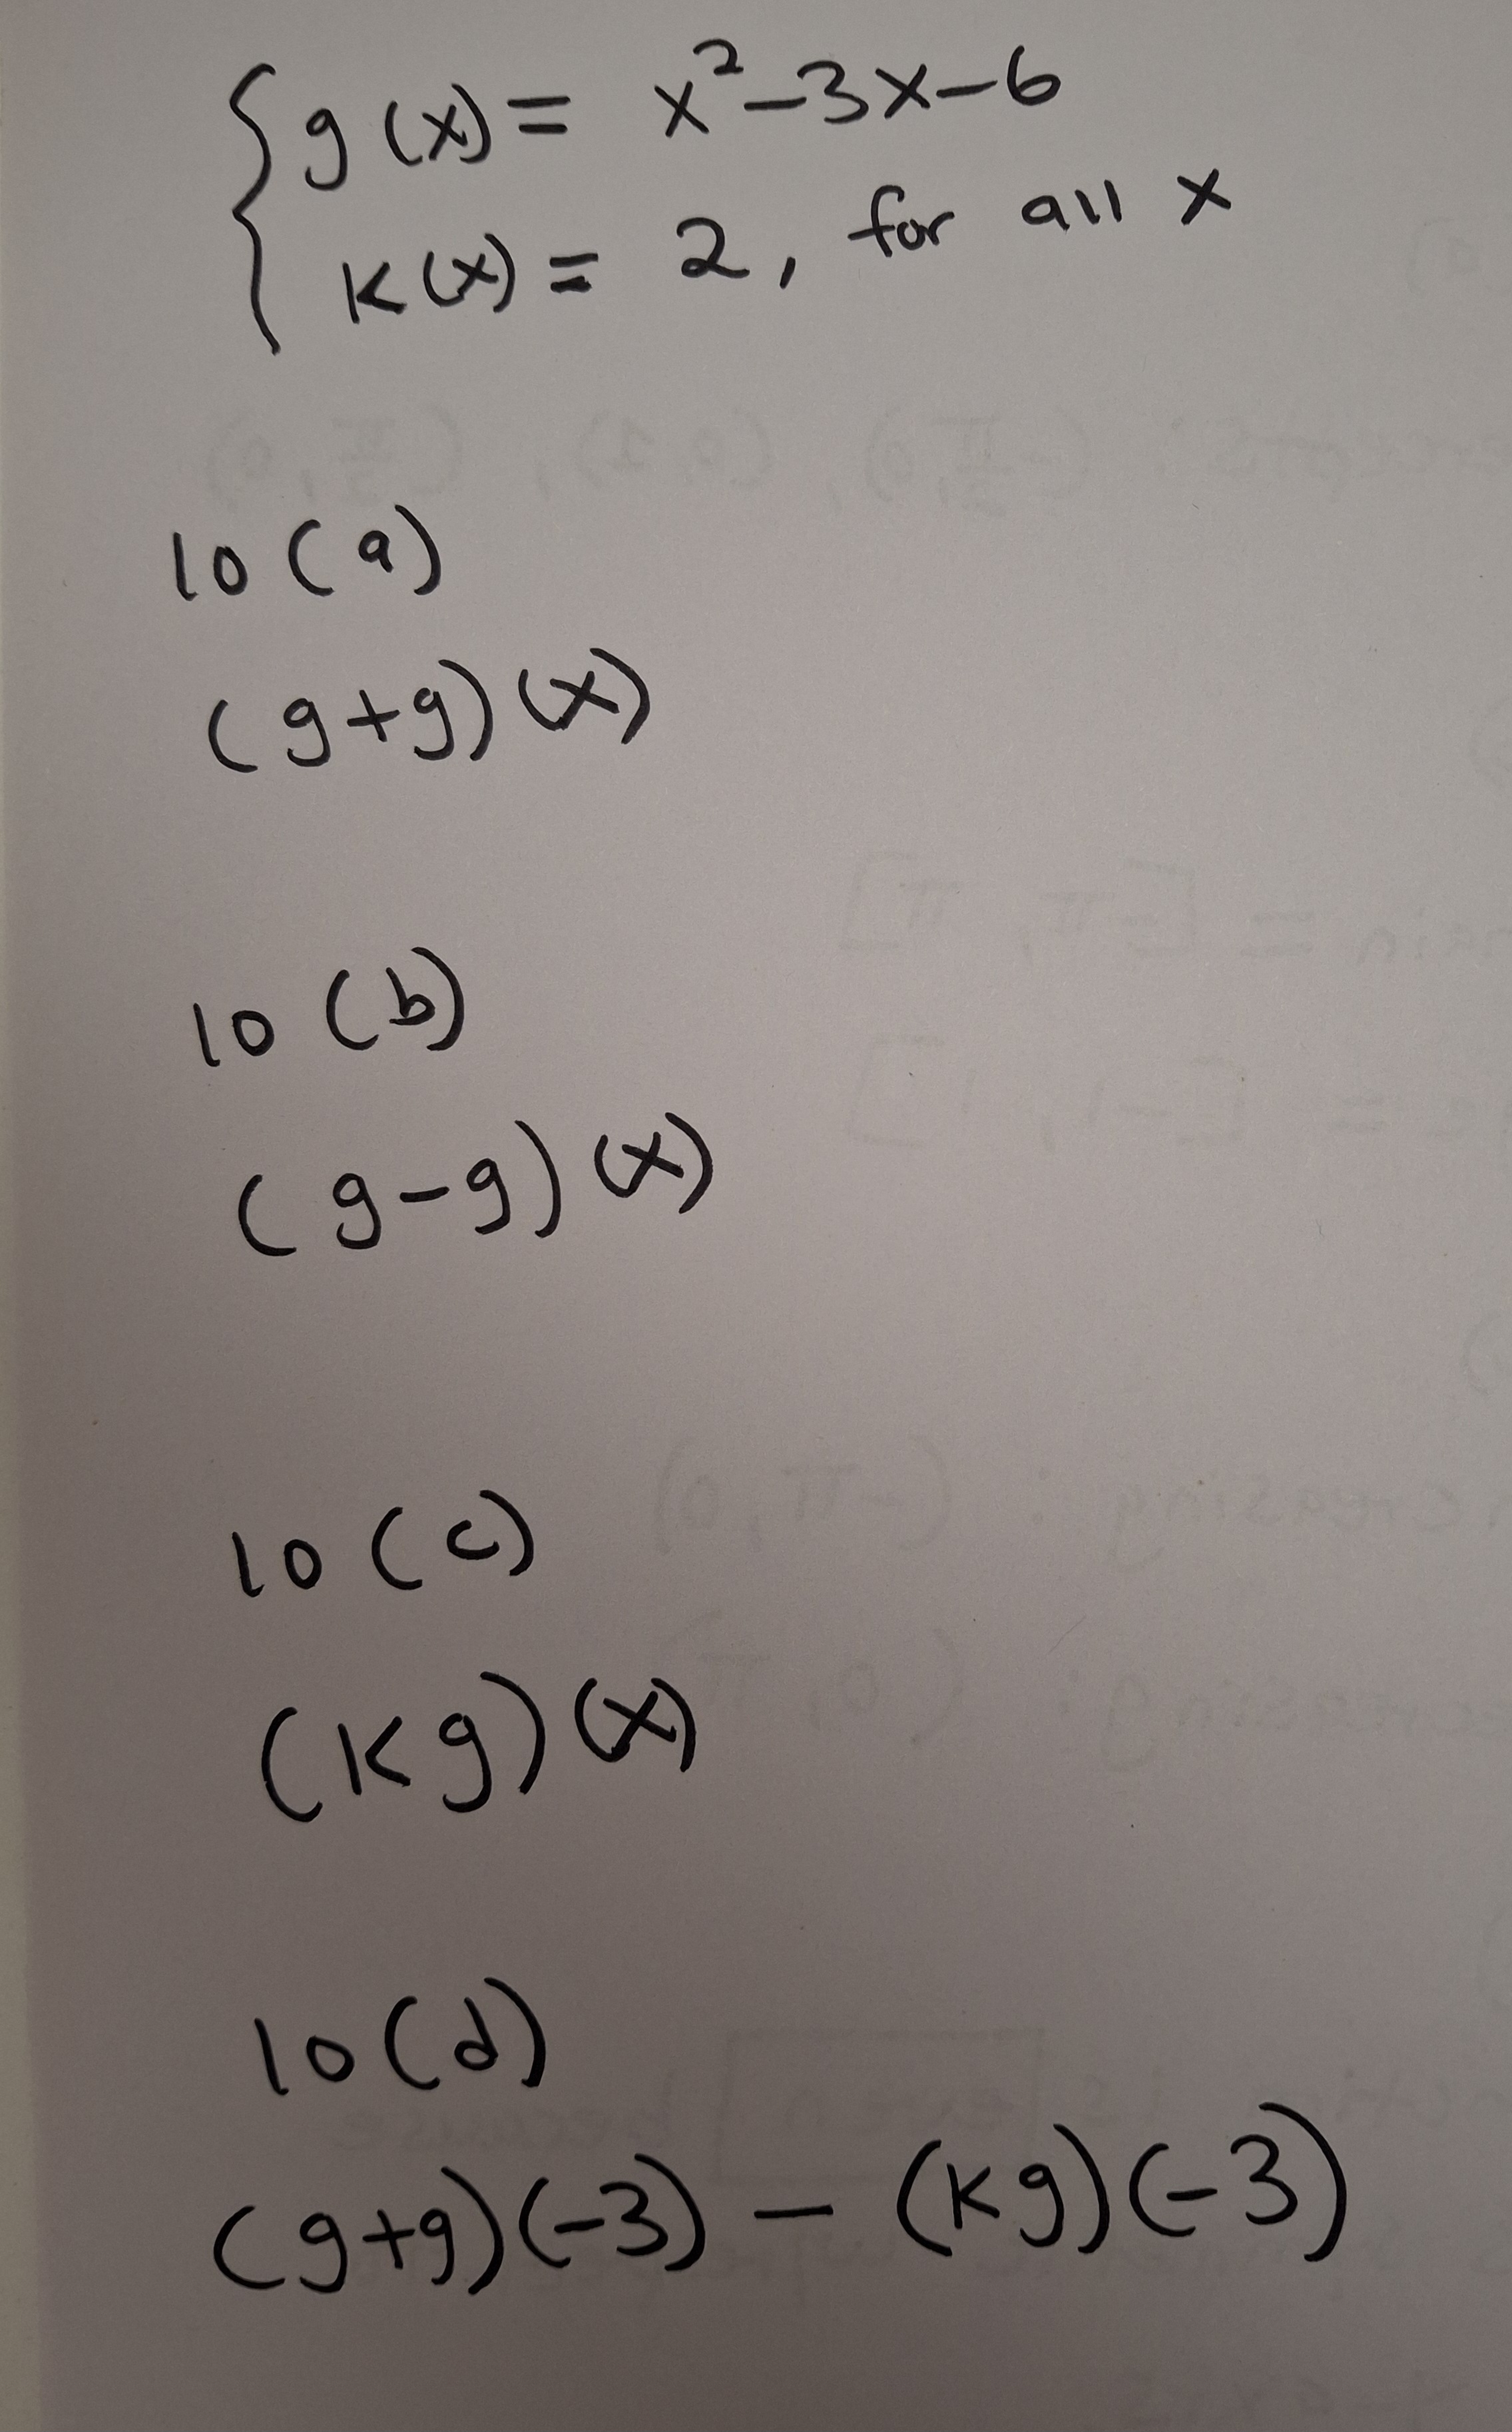 g(x) = x²-3x-6
K(x) = 2, for all x
10(a)
(g+g)(x)
10(b)
(g-g)(x)
10(c)
(Kg)(x)
10(d)
(g+g)(-3) - (Kg)(-3)